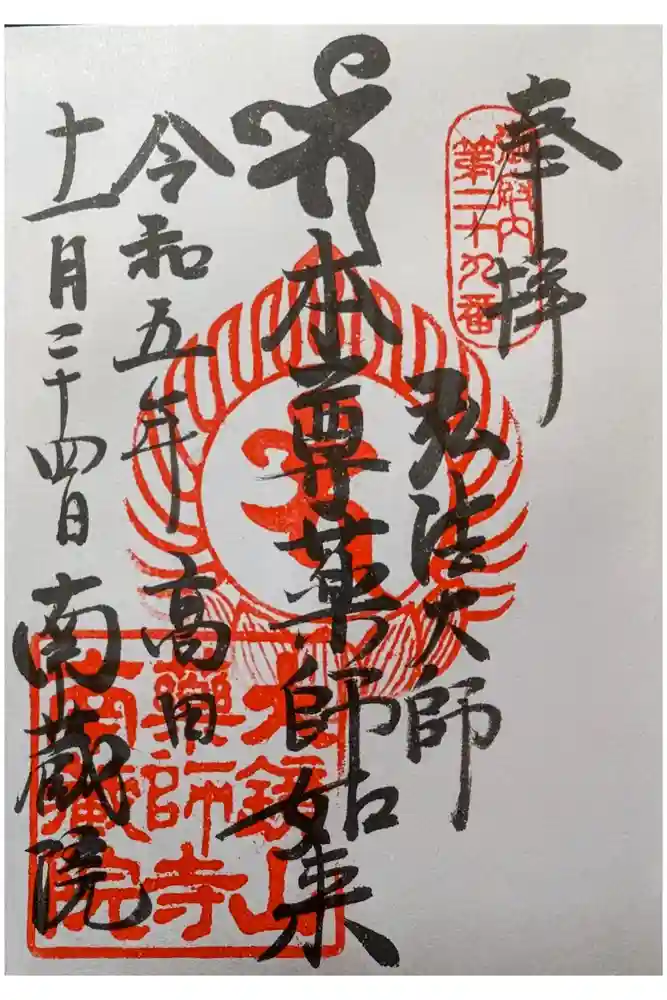 奉拝
第二十九番
弘法大師
本尊薬師如来
令和五年
高田
十一月二十四日
南蔵院
薬師寺
南蔵院